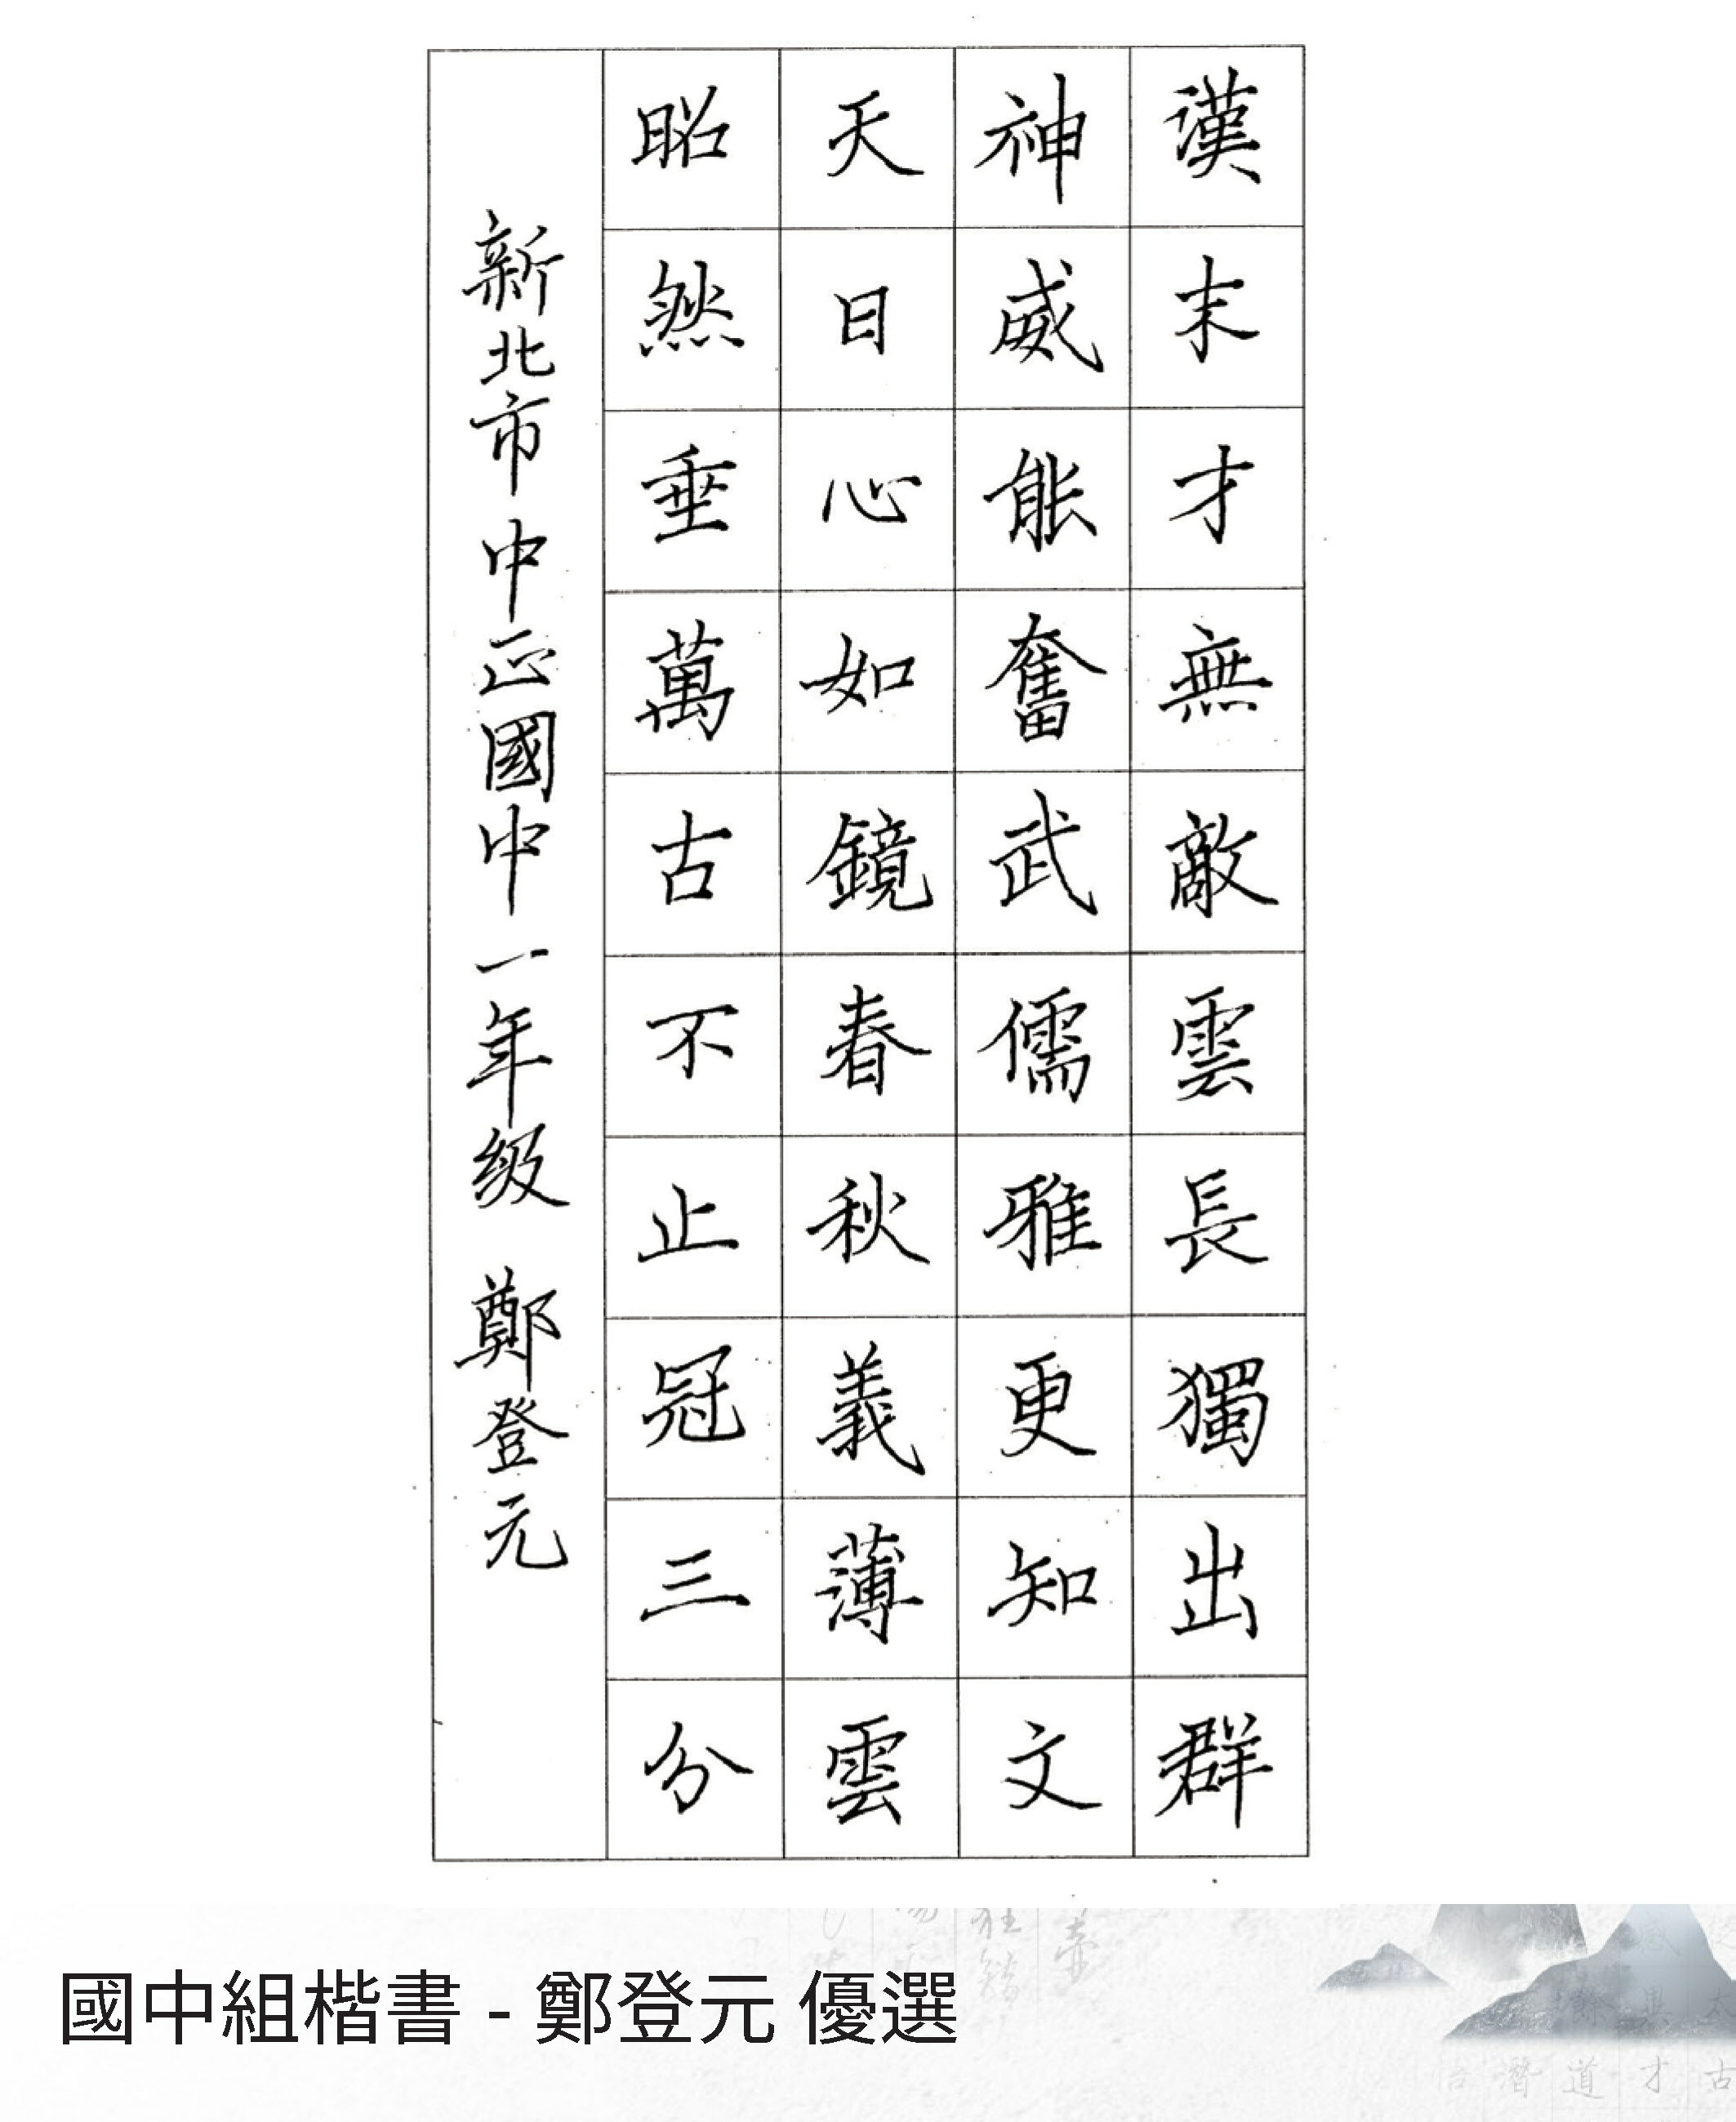 漢末才無敵雲長獨出群
神威能奮武儒雅更知文
天日心如鏡春秋義薄雲
昭然垂萬古不止冠三分
新北市中正國中一年級 鄭登元
國中組楷書 - 鄭登元 優選